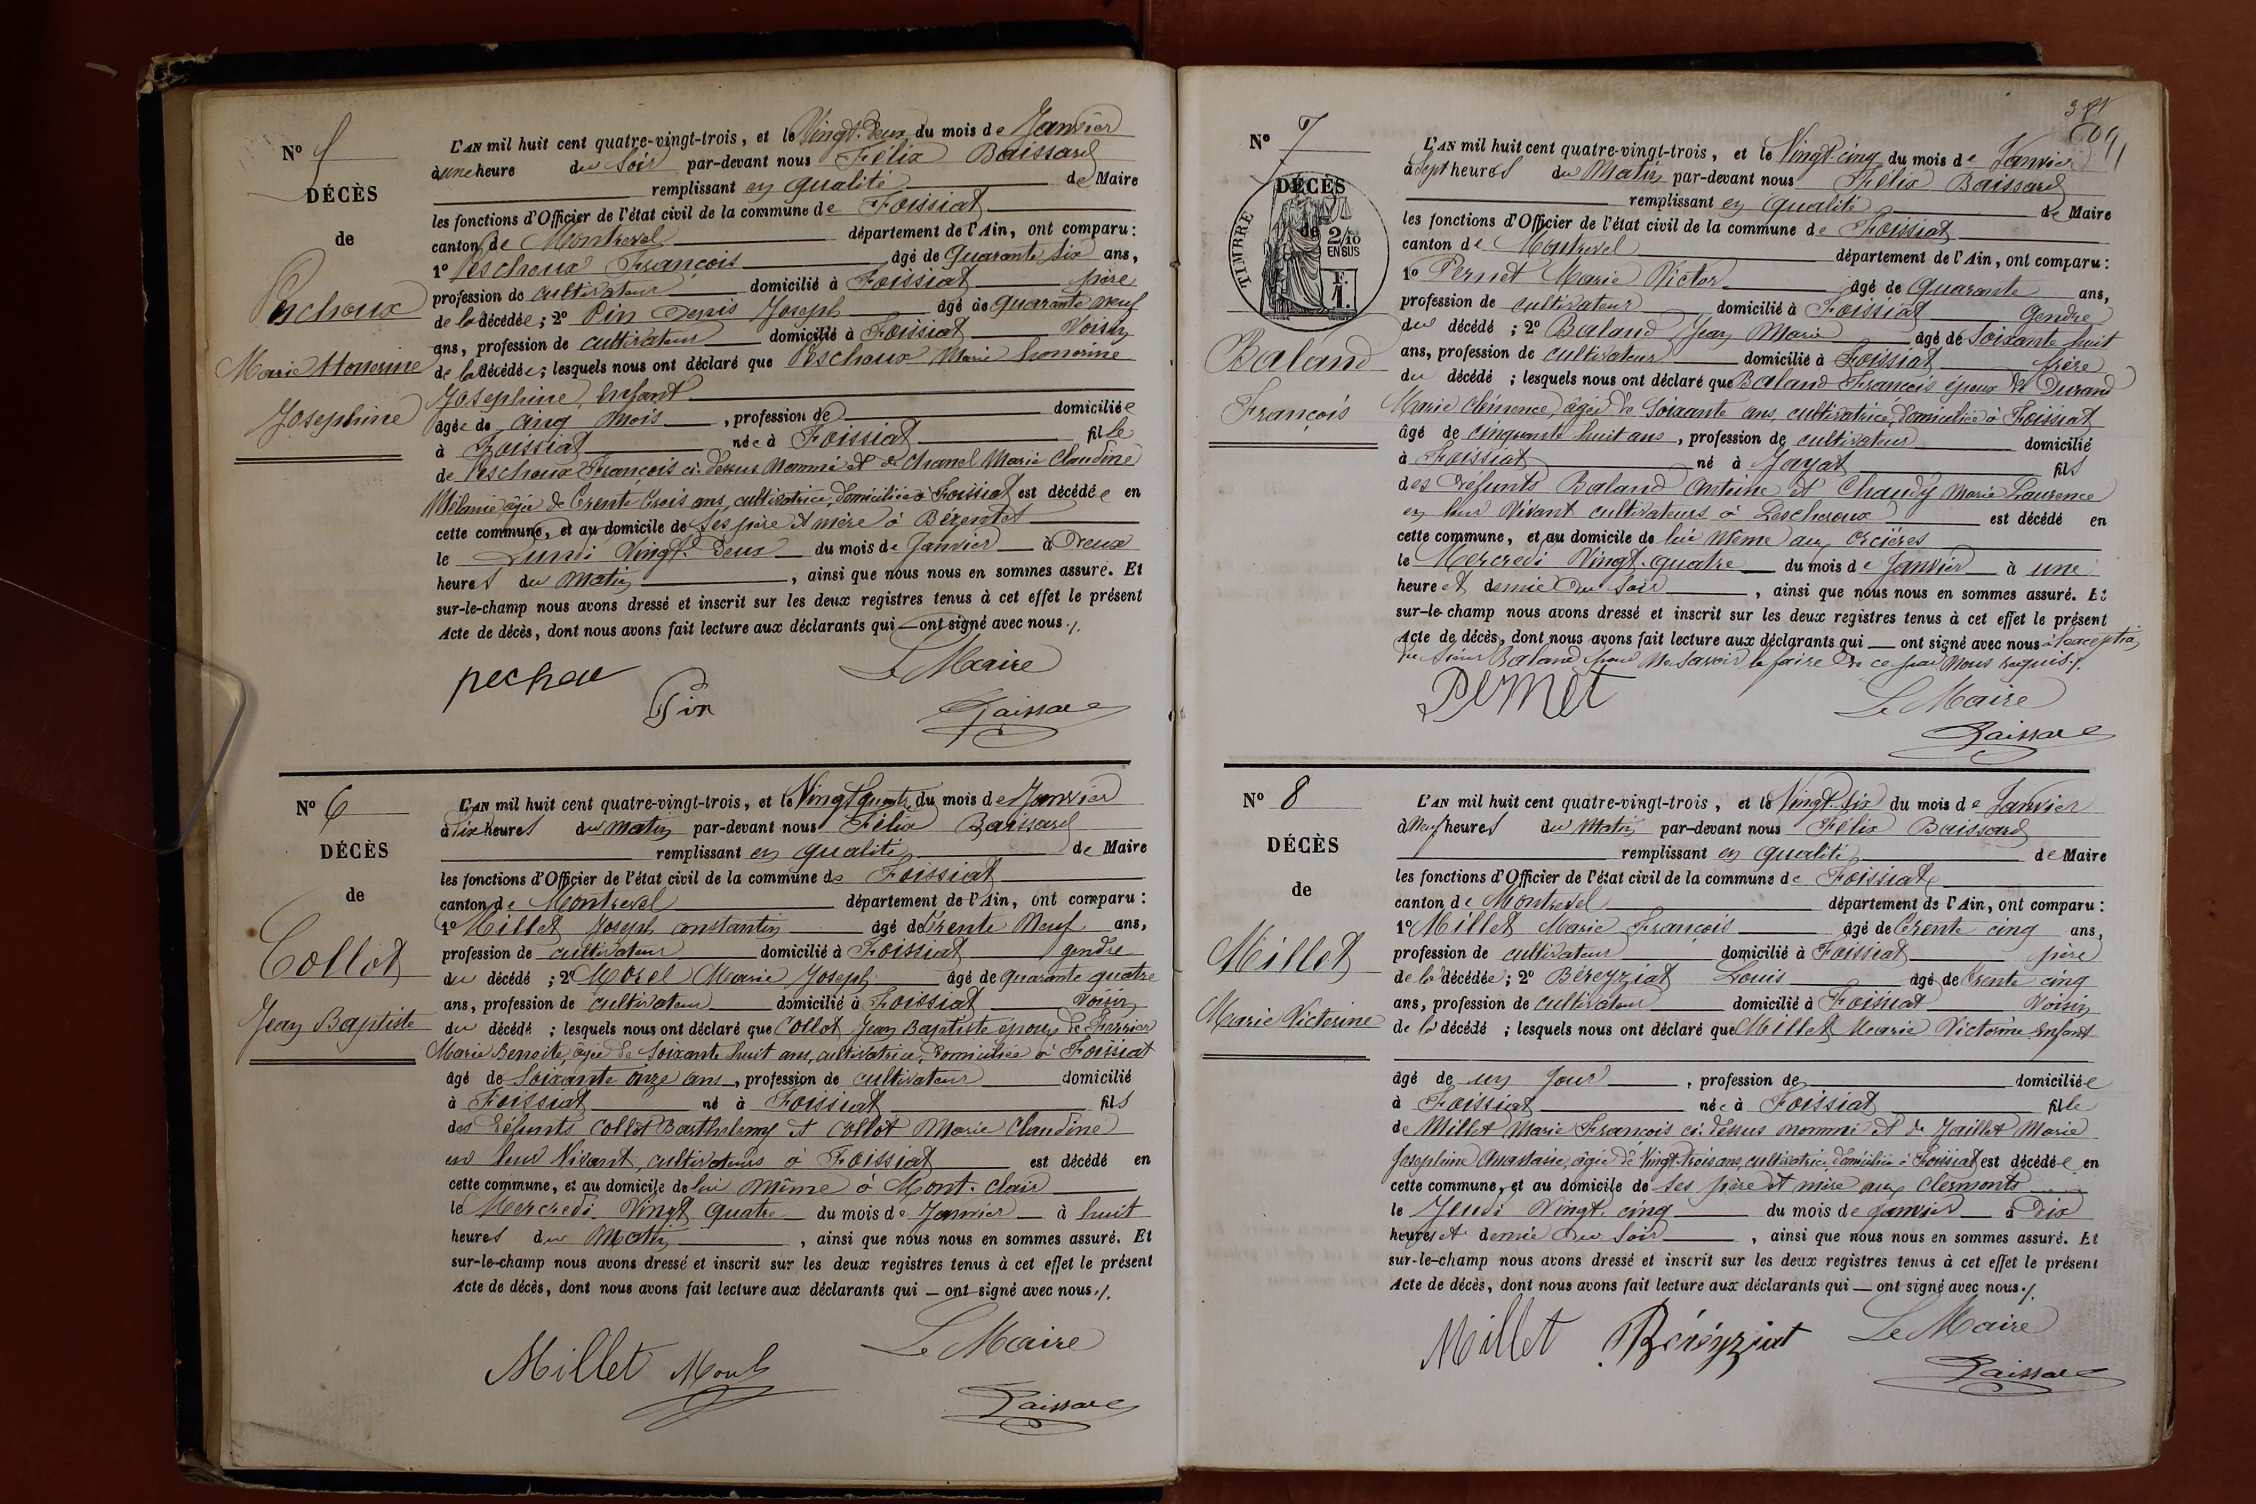 N° 5
DÉCÈS
de
Peschoux
Marie Honorine
Josephine
L'AN mil huit cent quatre-vingt-trois, et le Vingt-deux du mois de Janvier
à une heure du Soir par-devant nous Félix Baissard
remplissant en qualité de Maire
les fonctions d'Officier de l'état civil de la commune de Foissiat
canton de Montrevel département de l'Ain, ont comparu:
1° Peschoux François âgé de Quarante six ans,
profession de cultivateur domicilié à Foissiat père
de la décédée; 2° Pin Denis Joseph âgé de quarante neuf
ans, profession de cultivateur domicilié à Foissiat Voisin
de la décédée; lesquels nous ont déclaré que Peschoux Marie honorine
Josephine, enfant
âgée de cinq mois, profession de domiciliée
à Foissiat née à Foissiat fille
de Peschoux François ci-dessus nommé et de Chanel Marie Claudine
Mélanie, âgée de trente trois ans, cultivatrice, domiciliée à Foissiat est décédée en
cette commune, et au domicile de ses père et mère à Bézentet
le Lundi Vingt-deux du mois de Janvier à deux
heures du matin, ainsi que nous nous en sommes assuré. Et
sur-le-champ nous avons dressé et inscrit sur les deux registres tenus à cet effet le présent
Acte de décès, dont nous avons fait lecture aux déclarants qui — ont signé avec nous ./.
pechou Pin Le Maire
Baissard
N° 6
DÉCÈS
de
Collot
Jean Baptiste
L'AN mil huit cent quatre-vingt-trois, et le Vingt quatre du mois de Janvier
à dix heures du matin par-devant nous Félix Baissard
remplissant en qualité de Maire
les fonctions d'Officier de l'état civil de la commune de Foissiat
canton de Montrevel département de l'Ain, ont comparu:
1° Millet Joseph constantin âgé de trente Neuf ans,
profession de cultivateur domicilié à Foissiat gendre
du décédé; 2° Morel Marie Joseph âgé de quarante quatre
ans, profession de cultivateur domicilié à Foissiat Voisin
du décédé; lesquels nous ont déclaré que Collot Jean Baptiste époux de Ferrier
Marie Benoite, âgée de Soixante huit ans, cultivatrice, domiciliée à Foissiat
âgé de Soixante onze ans, profession de cultivateur domicilié
à Foissiat né à Foissiat fils
des défunts Collot Barthelemy et Collot Marie Claudine
en leur Vivant, cultivateurs à Foissiat est décédé en
cette commune, et au domicile de lui même à Mont-clair
le Mercredi Vingt quatre du mois de Janvier à huit
heures du Matin, ainsi que nous nous en sommes assuré. Et
sur-le-champ nous avons dressé et inscrit sur les deux registres tenus à cet effet le présent
Acte de décès, dont nous avons fait lecture aux déclarants qui — ont signé avec nous ./.
Millet Morel Le Maire
Baissard
N° 7
DÉCÈS
de
TIMBRE
2/10
EN SUS
F.
1.
Baland
François
L'AN mil huit cent quatre-vingt-trois, et le Vingt-cinq du mois de Janvier
à Sept heures du Matin par-devant nous Félix Baissard
remplissant en qualité de Maire
les fonctions d'Officier de l'état civil de la commune de Foissiat
canton de Montrevel département de l'Ain, ont comparu:
1° Pernet Marie Victor âgé de Quarante ans,
profession de cultivateur domicilié à Foissiat gendre
du décédé; 2° Baland Jean Marie âgé de Soixante huit
ans, profession de cultivateur domicilié à Foissiat frère
du décédé; lesquels nous ont déclaré que Baland François époux de Durand
Marie Clémence, âgée de Soixante ans, cultivatrice, domiciliée à Foissiat
âgé de cinquante huit ans, profession de cultivateur domicilié
à Foissiat né à Jayat fils
des défunts Baland Antoine et Chaudy Marie Laurence
en leur Vivant cultivateurs à Lescheroux est décédé en
cette commune, et au domicile de lui même aux Orcières
le Mercredi Vingt-quatre du mois de Janvier à une
heure et demie du Soir, ainsi que nous nous en sommes assuré. Et
sur-le-champ nous avons dressé et inscrit sur les deux registres tenus à cet effet le présent
Acte de décès, dont nous avons fait lecture aux déclarants qui — ont signé avec nous à l'exception
du Sieur Baland pour Ne Savoir le faire de ce par Nous requis ./.
Pernet Le Maire
Baissard
N° 8
DÉCÈS
de
Millet
Marie Victorine
L'AN mil huit cent quatre-vingt-trois, et le Vingt-Six du mois de Janvier
à Neuf heures du Matin par-devant nous Félix Baissard
remplissant en qualité de Maire
les fonctions d'Officier de l'état civil de la commune de Foissiat
canton de Montrevel département de l'Ain, ont comparu:
1° Millet Marie François âgé de Trente cinq ans,
profession de cultivateur domicilié à Foissiat père
de la décédée; 2° Béreyziat Louis âgé de trente cinq
ans, profession de cultivateur domicilié à Foissiat Voisin
de la décédé; lesquels nous ont déclaré que Millet Marie Victorine enfant
âgé de un Jour, profession de domiciliée
à Foissiat née à Foissiat fille
de Millet Marie François ci-dessus nommé et de Jaillet Marie
Josephine Anastasie, âgée de Vingt-trois ans, cultivatrice, domiciliée à Foissiat est décédée en
cette commune, et au domicile de ses père et mère aux Clermonts
le Jeudi Vingt-cinq du mois de Janvier à Dix
heures et demie du Soir, ainsi que nous nous en sommes assuré. Et
sur-le-champ nous avons dressé et inscrit sur les deux registres tenus à cet effet le présent
Acte de décès, dont nous avons fait lecture aux déclarants qui — ont signé avec nous ./.
Millet Béréyziat Le Maire
Baissard